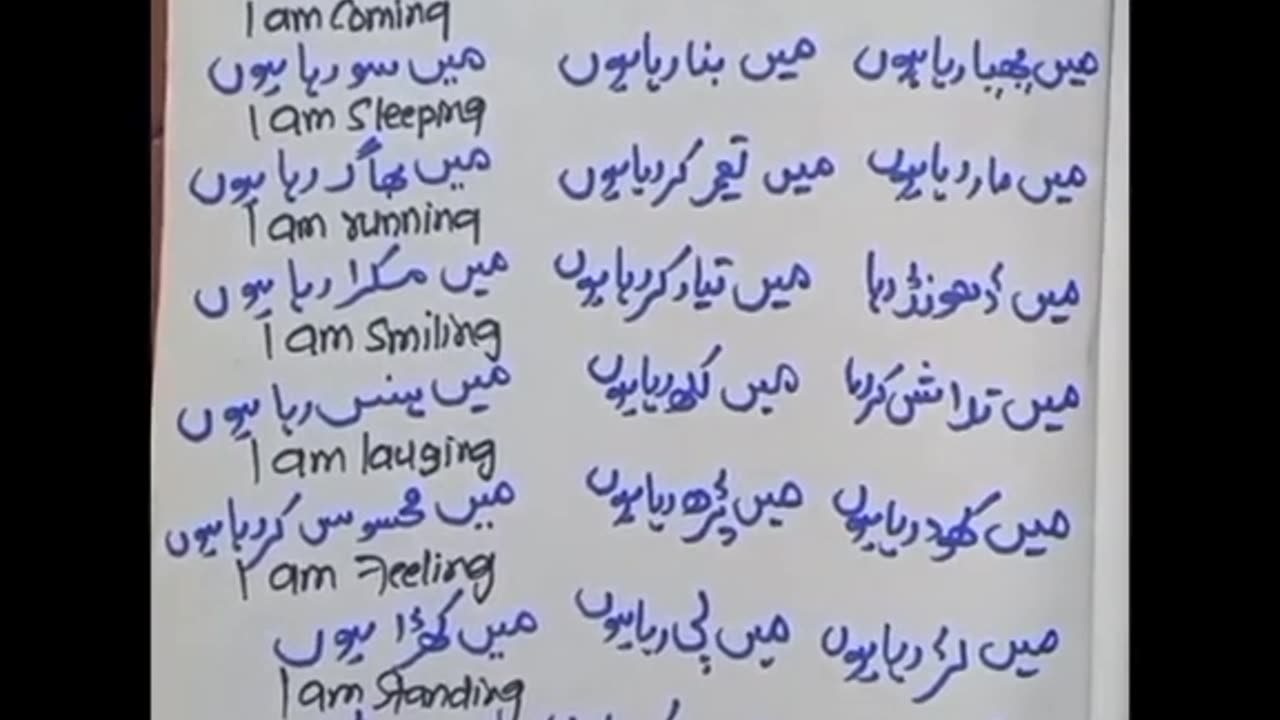 I am Coming
میں چھپا رہا ہوں میں بنا رہا ہوں میں سو رہا ہوں
I am Sleeping
میں مار رہا ہوں میں تعمیر کر رہا ہوں میں بھاگ رہا ہوں
I am running
میں ڈھونڈ رہا میں تیار کر رہا ہوں میں مسکرا رہا ہوں
I am Smiling
میں تلاش کر رہا میں لکھ رہا ہوں میں ہنس رہا ہوں
I am lauging
میں کھود رہا ہوں میں پڑھ رہا ہوں میں محسوس کر رہا ہوں
I am Feeling
میں لڑ رہا ہوں میں پی رہا ہوں میں کھڑا ہوں
I am Standing